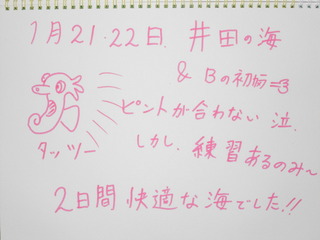 1月21・22日 井田の海
& Bの初
ピントが合わない 泣
しかし、練習あるのみ〜
タッツー
2日間 快適な海でした!!